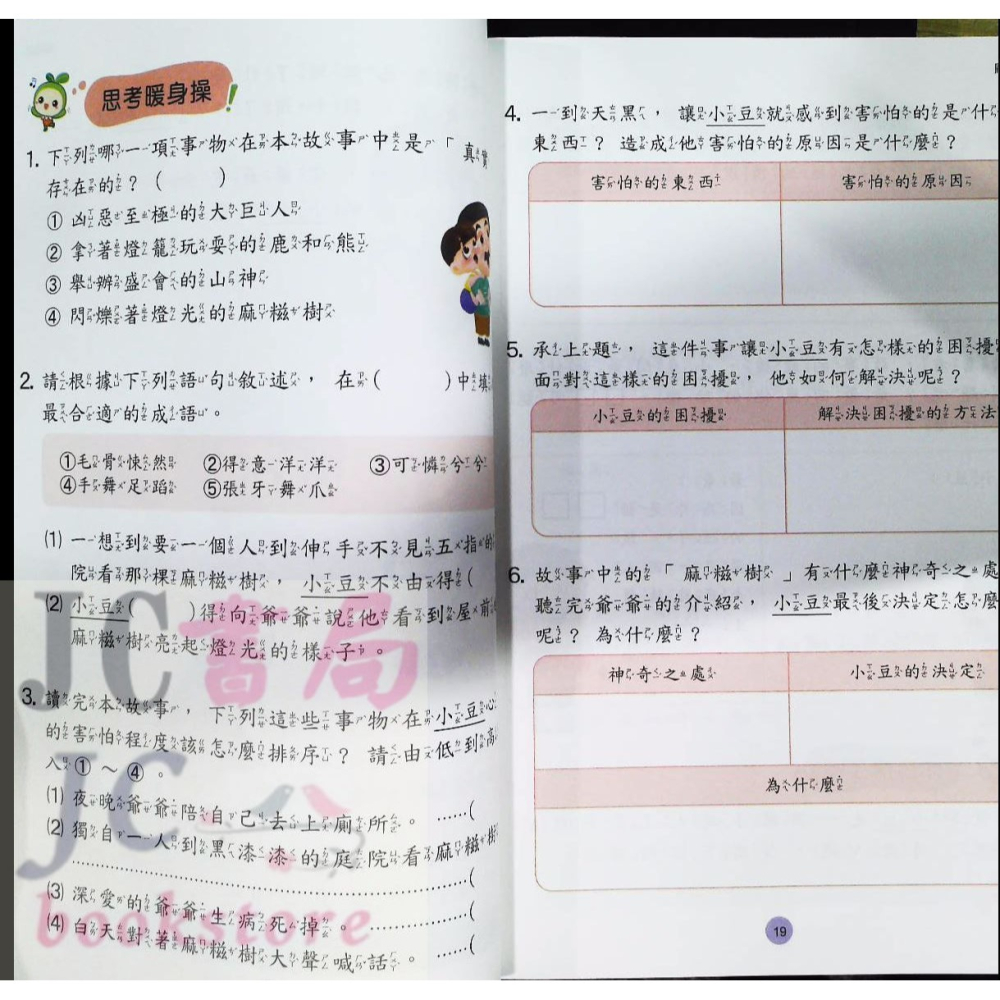 思考暖身操！
1. 下列哪一項事物在本故事中是「真實
存在的？（　　）
① 凶惡至極的大巨人
② 拿著燈籠玩耍的鹿和熊
③ 舉辦盛會的山神
④ 閃爍著燈光的麻糍樹
2. 請根據下列語句敘述，在（　　）中填
最合適的成語。
①毛骨悚然 ②得意洋洋 ③可憐兮兮
④手舞足蹈 ⑤張牙舞爪
(1) 一想到要一個人到伸手不見五指的
院看那棵麻糍樹，小豆不由得（
(2) 小豆（　　）得向爺爺說他看到屋前
麻糍樹亮起燈光的樣子。
3. 讀完本故事，下列這些事物在小豆心
的害怕程度該怎麼排序？請由低到高
入①～④。
(1) 夜晚爺爺陪自己去上廁所。……（
(2) 獨自一人到黑漆漆的庭院看麻糍樹
……………………………………（
(3) 深愛的爺爺生病死掉。…………（
(4) 白天對著麻糍樹大聲喊話。……（
4. 一到天黑，讓小豆就感到害怕的是什
東西？造成他害怕的原因是什麼？
害怕的東西 害怕的原因
5. 承上題，這件事讓小豆有怎樣的困擾
面對這樣的困擾，他如何解決呢？
小豆的困擾 解決困擾的方法
6. 故事中的「麻糍樹」有什麼神奇之處
聽完爺爺的介紹，小豆最後決定怎麼
呢？為什麼？
神奇之處 小豆的決定
為什麼
19
JC書局
JC
bookstore